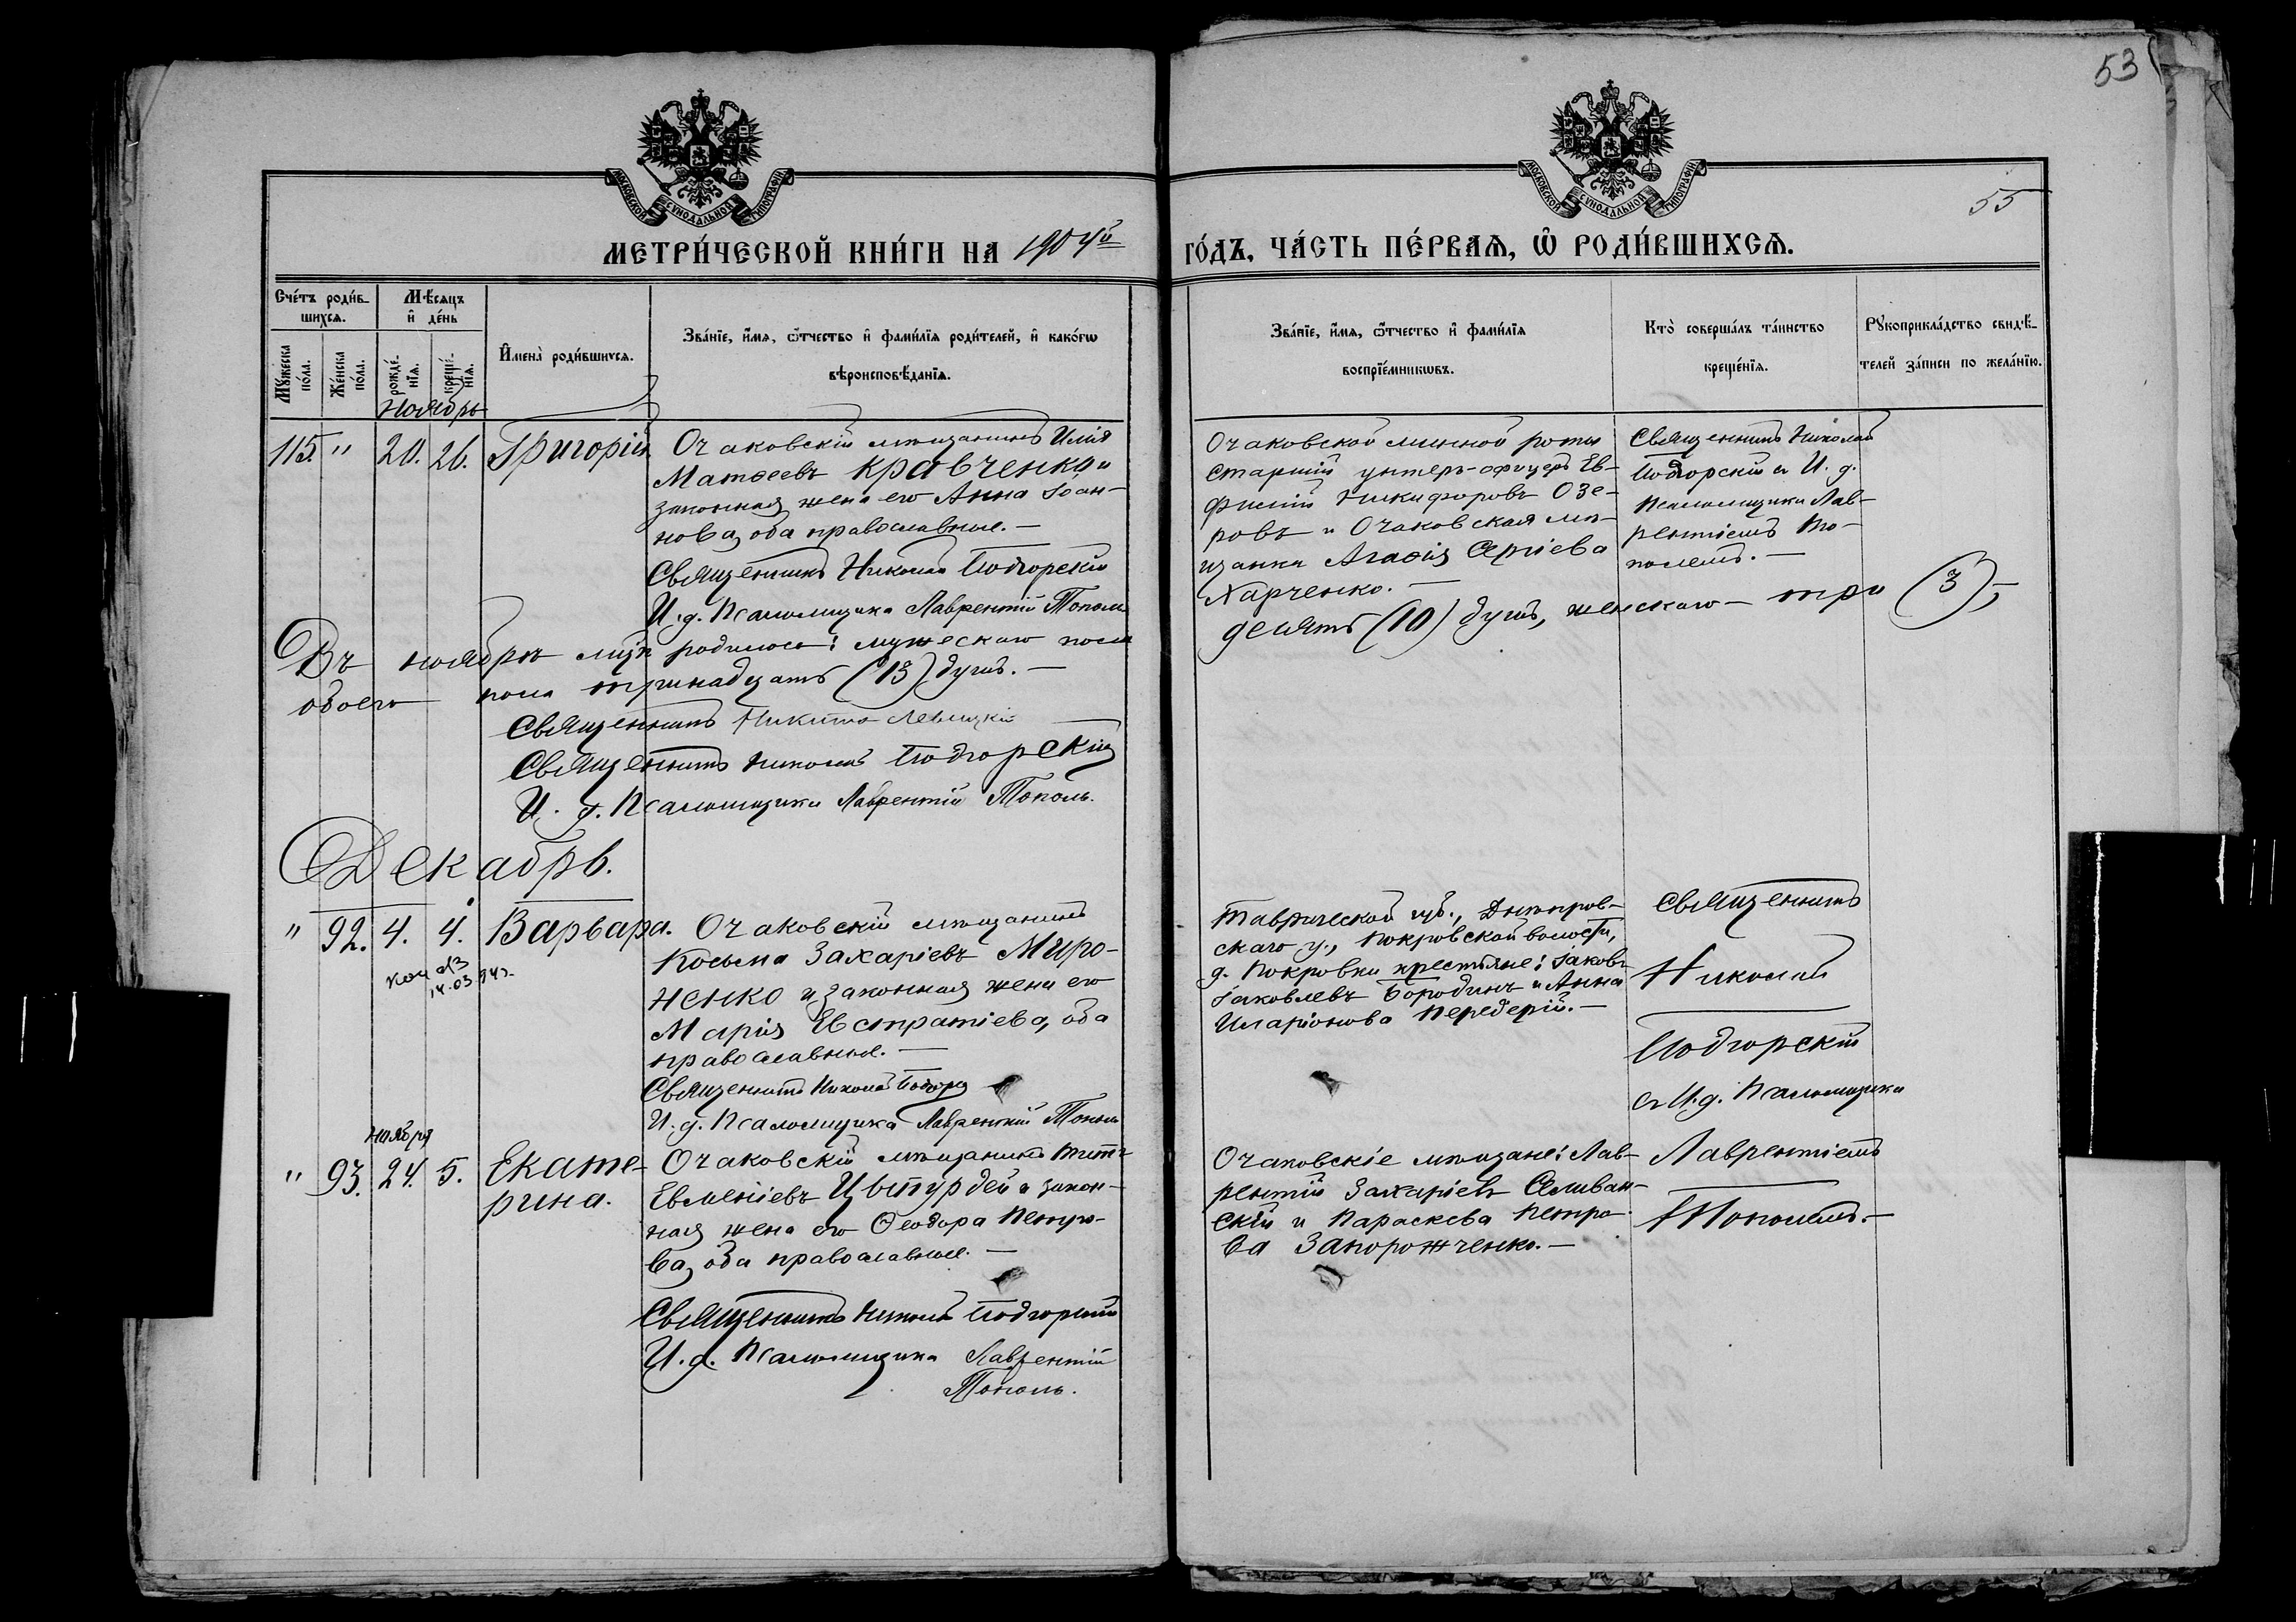 53
55
МОСКОВСКОЙ СѴНОДАЛЬНОЙ ТИПОГРАФІИ
МОСКОВСКОЙ СѴНОДАЛЬНОЙ ТИПОГРАФІИ
МЕТРИ́ЧЕСКОЙ КНИ́ГИ НА 1904й
ГО́ДЪ, ЧА́СТЬ ПЕ́РВАѦ, Ѽ РОДИ́ВШИХСѦ.
Сче́тъ роди́в-
шихсѧ.
Мѣ́сѧцъ
и҆ де́нь
Мꙋ́жеска
по́ла.
Же́нска
по́ла.
рожде́-
нїѧ.
креще́-
нїѧ.
И҆мена̀ роди́вшихсѧ.
Зва́нїе, и҆́мѧ, ѻ҆́тчество и҆ фами́лїѧ роди́телей, и҆ како́гѡ
вѣроисповѣ́данїѧ.
Зва́нїе, и҆́мѧ, ѻ҆́тчество и҆ фами́лїѧ
воспрїе́мникѡвъ.
Кто̀ соверша́лъ та́инство
креще́нїѧ.
Рꙋкоприкла́дство свидѣ́-
телей за́писи по жела́нїю.
Ноябрь
115. " 20. 26. Григорій
Очаковскій мѣщанинъ Илія
Матѳеевъ Кравченко и
законная жена его Анна Іоан-
нова, оба православные. —
Священникъ Николай Подгорскій
И. д. Псаломщика Лаврентій Тополь
Очаковской минной роты
старшій унтеръ-офицеръ Ев-
фимій Никифоровъ Озе-
ровъ и Очаковская мѣ-
щанка Агаѳія Сергіева
Харченко. —
Священникъ Николай
Подгорскій съ И. д.
Псаломщика Лав-
рентіемъ То-
полемъ. —
Въ ноябрѣ м-цѣ родилось: мужескаго пола
десять (10) душъ, женскаго — три (3),—
обоего пола тринадцать (13) душъ. —
Священникъ Никита Левицкій
Священникъ Николай Подгорскій
И. д. Псаломщика Лаврентій Тополь.
Декабрь.
" 92. 4. 4. Варвара.
14.03.94г.
Очаковскій мѣщанинъ
Косьма Захаріевъ Миро-
ненко и законная жена его
Марія Евстратіева, оба
православные. —
Священникъ Николай
И. д. Псаломщика Лаврентій Тополь
Таврической губ., Днѣпров-
скаго у., Покровской волости,
д. Покровки крестьяне: Іаковъ
Іаковлевъ Бородинъ и Анна
Иларіонова Передерій. —
Священникъ
Николай
Подгорскій
съ И. д. Псаломщика
Лаврентіемъ
Тополемъ. —
Ноября
" 93. 24. 5. Екате-
рина.
Очаковскій мѣщанинъ Титъ
Евменіевъ и закон-
ная жена его Ѳеодора Петро-
ва, оба православные. —
Священникъ Николай Подгорскій
И. д. Псаломщика Лаврентій
Тополь.
Очаковскіе мѣщане: Лав-
рентій Захаріевъ Селиван-
скій и Параскева Петро-
ва Запорожченко. —